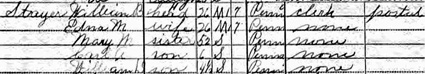 Strayer William R head 26 M 17 Penn clerk postal
Edna M wife 26 M 17 Penn none
Mary M sister 52 S Penn none
son 6 S Penn none
William son S Penn none